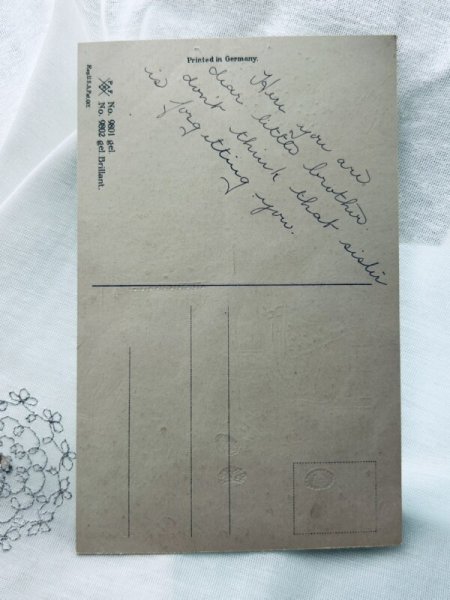 Printed in Germany.
Here you are
dear little brother
don't think that sister
is forgetting you.
No. 9801 gel
No. 9802 gel Brillant.
Reg U.S.Pat.Off.